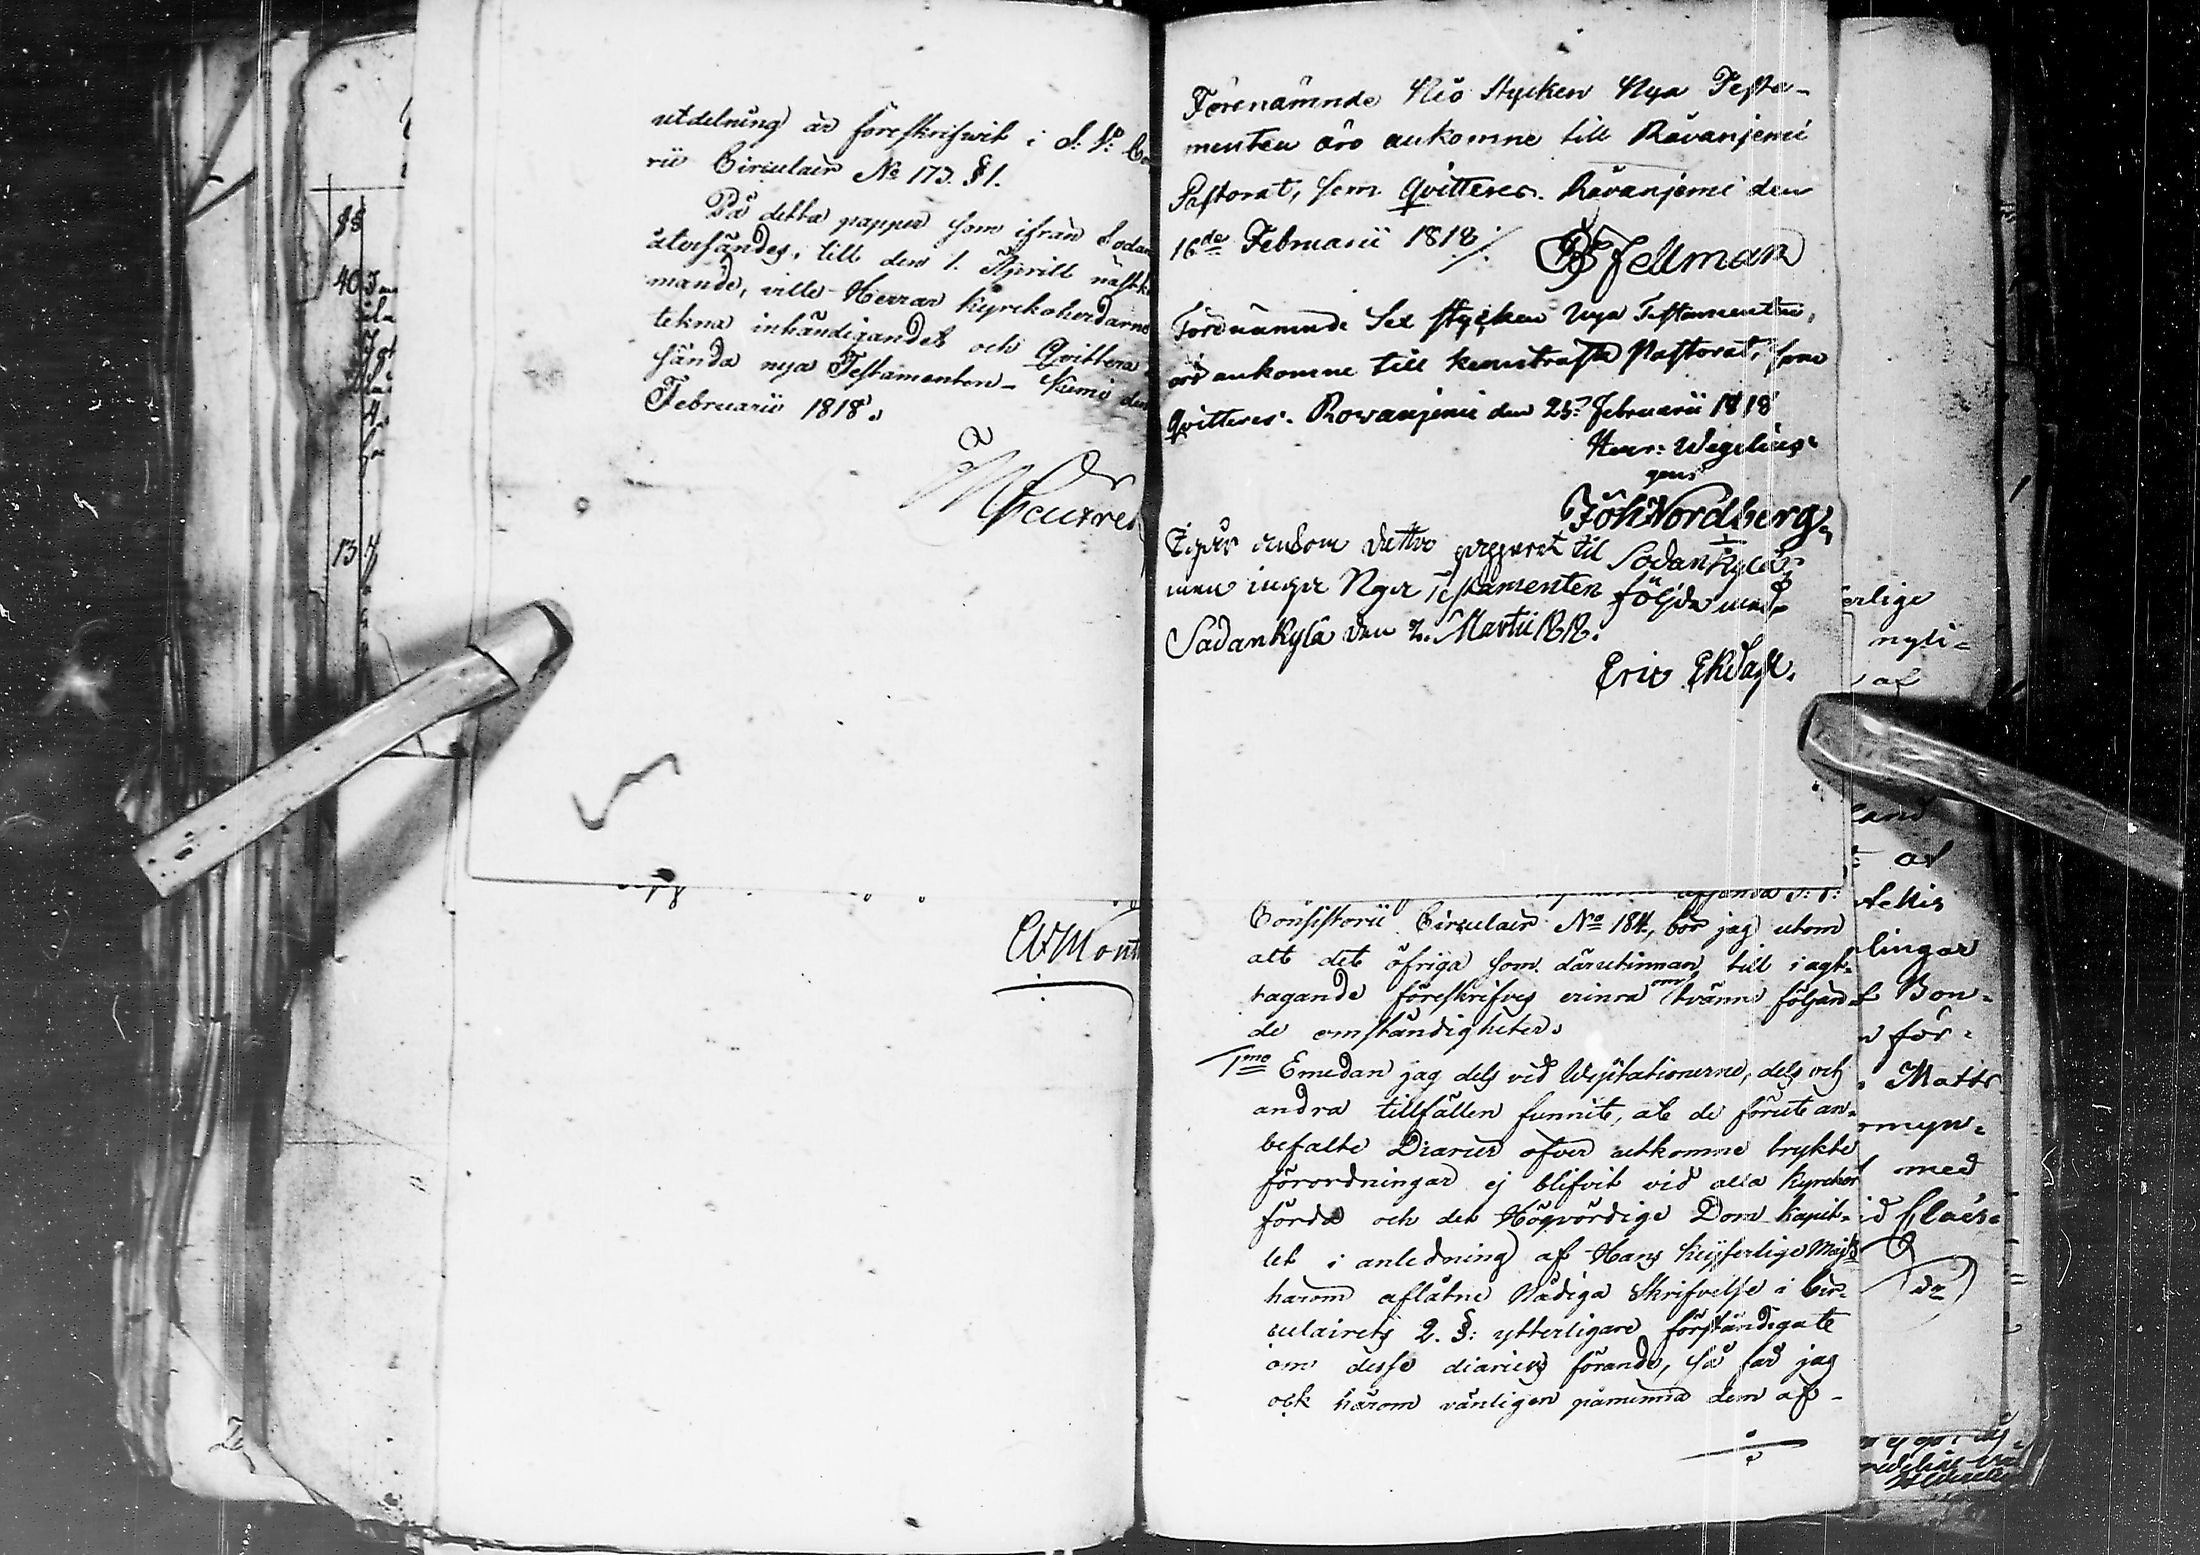 utdelning är föreskrifwit i S: V:
rii Circulair No 173. §1.
På detta papper som ifrån Sodan
återsändes, till den 1. April nästk
mande, wille Herrar Kyrckoherdarne
tekna inhändigandet och Qvittera
sända nya Testamenten - Kemi den
Februarii 1818.

Förenämnde Nio Stycken Nya Testa-
menten äro ankomne till Råvanjemi
Pastorat, som Qvitteres. Råvanjemi den
16de Februarii 1818 ./.
Fellman
Förenämnde Sex stycken Nya Testamenten,
äro ankomne till Kemiträsk Pastorat, som
Qvitteres. Rovanjemi den 25. Februarii 1818
Henr: Wegelius
genom
Joh Nordberg
detta papperet til Sodankylä
men inga Nya Testamenten följde med
Sodankylä den 2. Martii 1818.
Eric Ekdahl.

Consistorii Circulair No 184, bör jag utom
alt det öfriga som därutinnan till iagt-
tagande föreskrifves erinra om tvänne följan-
de omständigheter.
1mo Emedan jag dels vid Wisitationerne, dels vid
andra tillfällen funnit, at de förut an-
befalte Diarier öfver utkomne trykte
förordningar ej blifvit vid alla Kyrckor
förda och det Högvördige Dom Kapit-
let i anledning af Hans Keijserlige Majts
härom aflåtne Nådiga Skrifvelse i Cir-
culairets 2. §: ytterligare förständigate
om desse diariers förande, så får jag
ock härom vänligen påminna dem af-

40
13
erlige
nyli=
af
land
af
lingar
Bon=
för=
Matts
med